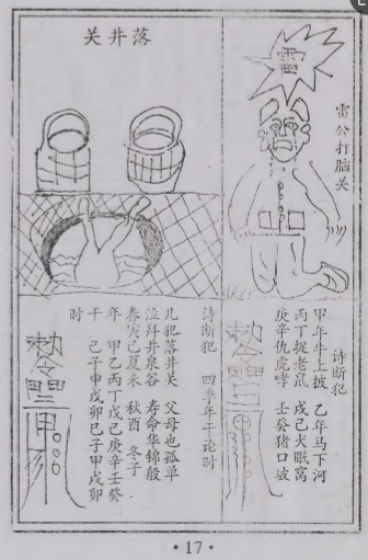 雷
雷公打脑关
诗断犯
甲年牛上披 乙年马下河
丙丁捉老鼠 戊己犬眠窝
庚辛仇虎哮 壬癸猪口破
落井关
诗断犯 四季年干论时
儿犯落井关 父母也孤单
泣拜井泉谷 寿命华锦般
春寅己夏未 秋酉 冬子
年 甲乙丙丁戊己庚辛壬癸
干 己子申戌卯巳子甲戌卯
时
·17·